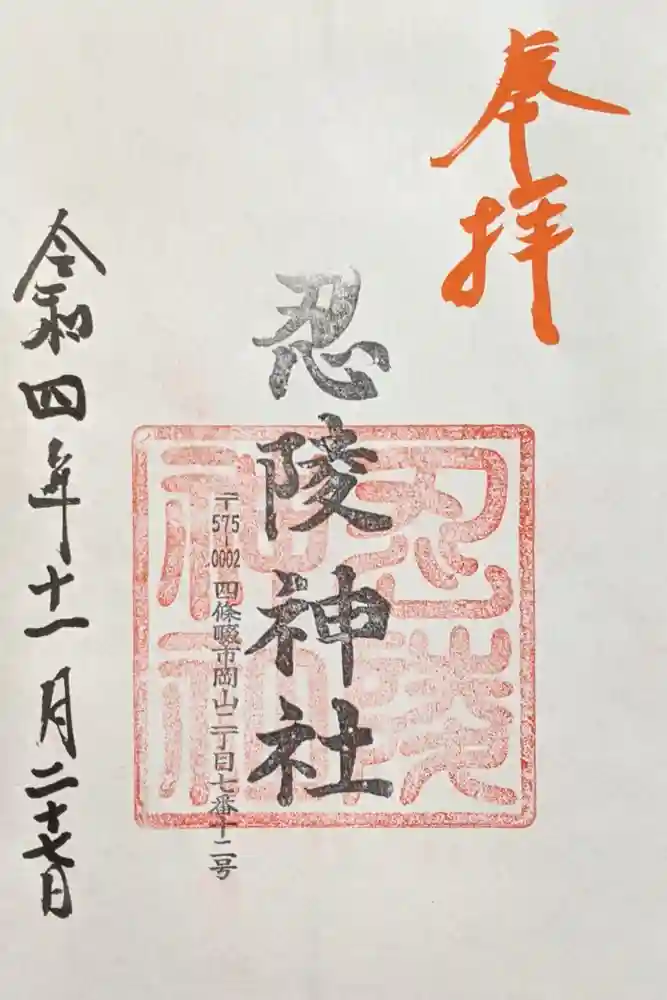 奉拝
忍陵神社
忍陵神社
〒575-0002 四條畷市岡山二丁目七番十二号
令和四年十一月二十七日